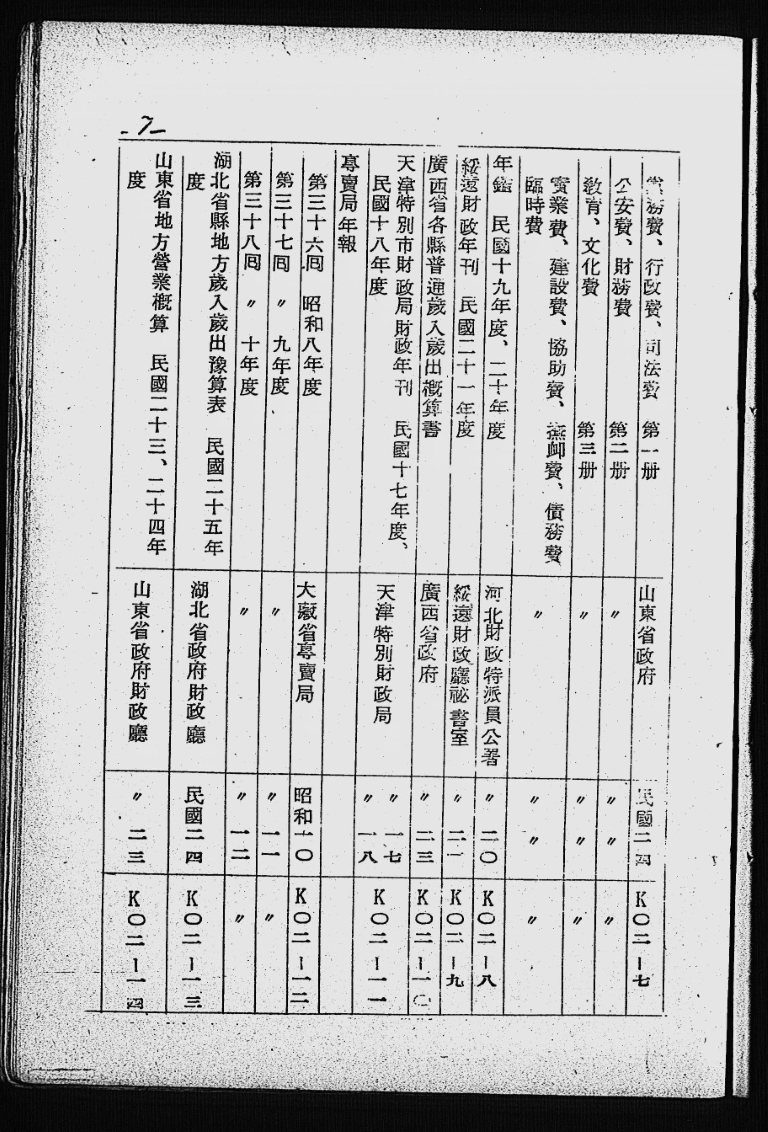 -7-
黨務費、行政費、司法費 第一册 山東省政府 民國二四 K〇二-七
公安費、財務費 第二册 〃 〃〃 〃
敎育、文化費 第三册 〃 〃〃 〃
實業費、建設費、協助費、撫卹費、債務費
臨時費 〃 〃〃 〃
年鑑 民國十九年度、二十年度 河北財政特派員公署 〃二〇 K〇二-八
綏遠財政年刊 民國二十一年度 綏遠財政廳祕書室 〃二一 K〇二-九
廣西省各縣普通歲入歲出槪算書 廣西省政府 〃二三 K〇二-一〇
天津特別市財政局財政年刊 民國十七年度、 〃一七
民國十八年度 天津特別財政局 〃一八 K〇二-一一
專賣局年報
第三十六囘 昭和八年度 大藏省專賣局 昭和一〇 K〇二-一二
第三十七囘 〃 九年度 〃 〃一一 〃
第三十八囘 〃 十年度 〃 〃一二 〃
湖北省縣地方歲入歲出豫算表 民國二十五年
度 湖北省政府財政廳 民國二四 K〇二-一三
山東省地方營業槪算 民國二十三、二十四年
度 山東省政府財政廳 〃二三 K〇二-一四